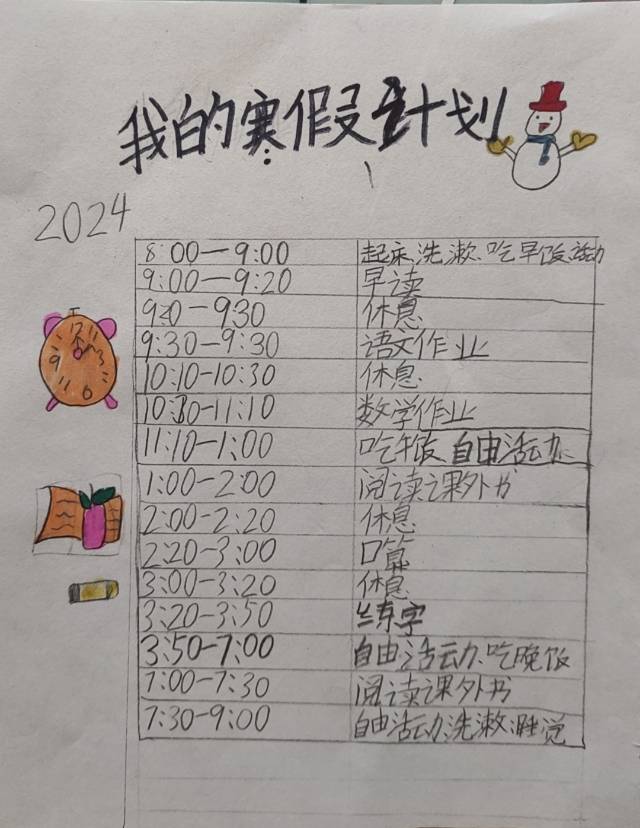 我的寒假计划
2024
8:00—9:00 起床、洗漱、吃早饭活动
9:00—9:20 早读
9:20—9:30 休息
9:30-9:30 语文作业
10:10-10:30 休息
10:30-11:10 数学作业
11:10-1:00 吃午饭、自由活动
1:00-2:00 阅读课外书
2:00-2:20 休息
2:20-3:00 口算
3:00-3:20 休息
3:20-3:50 练字
3:50-7:00 自由活动、吃晚饭
7:00-7:30 阅读课外书
7:30-9:00 自由活动、洗漱、睡觉
12 11 3 9 6